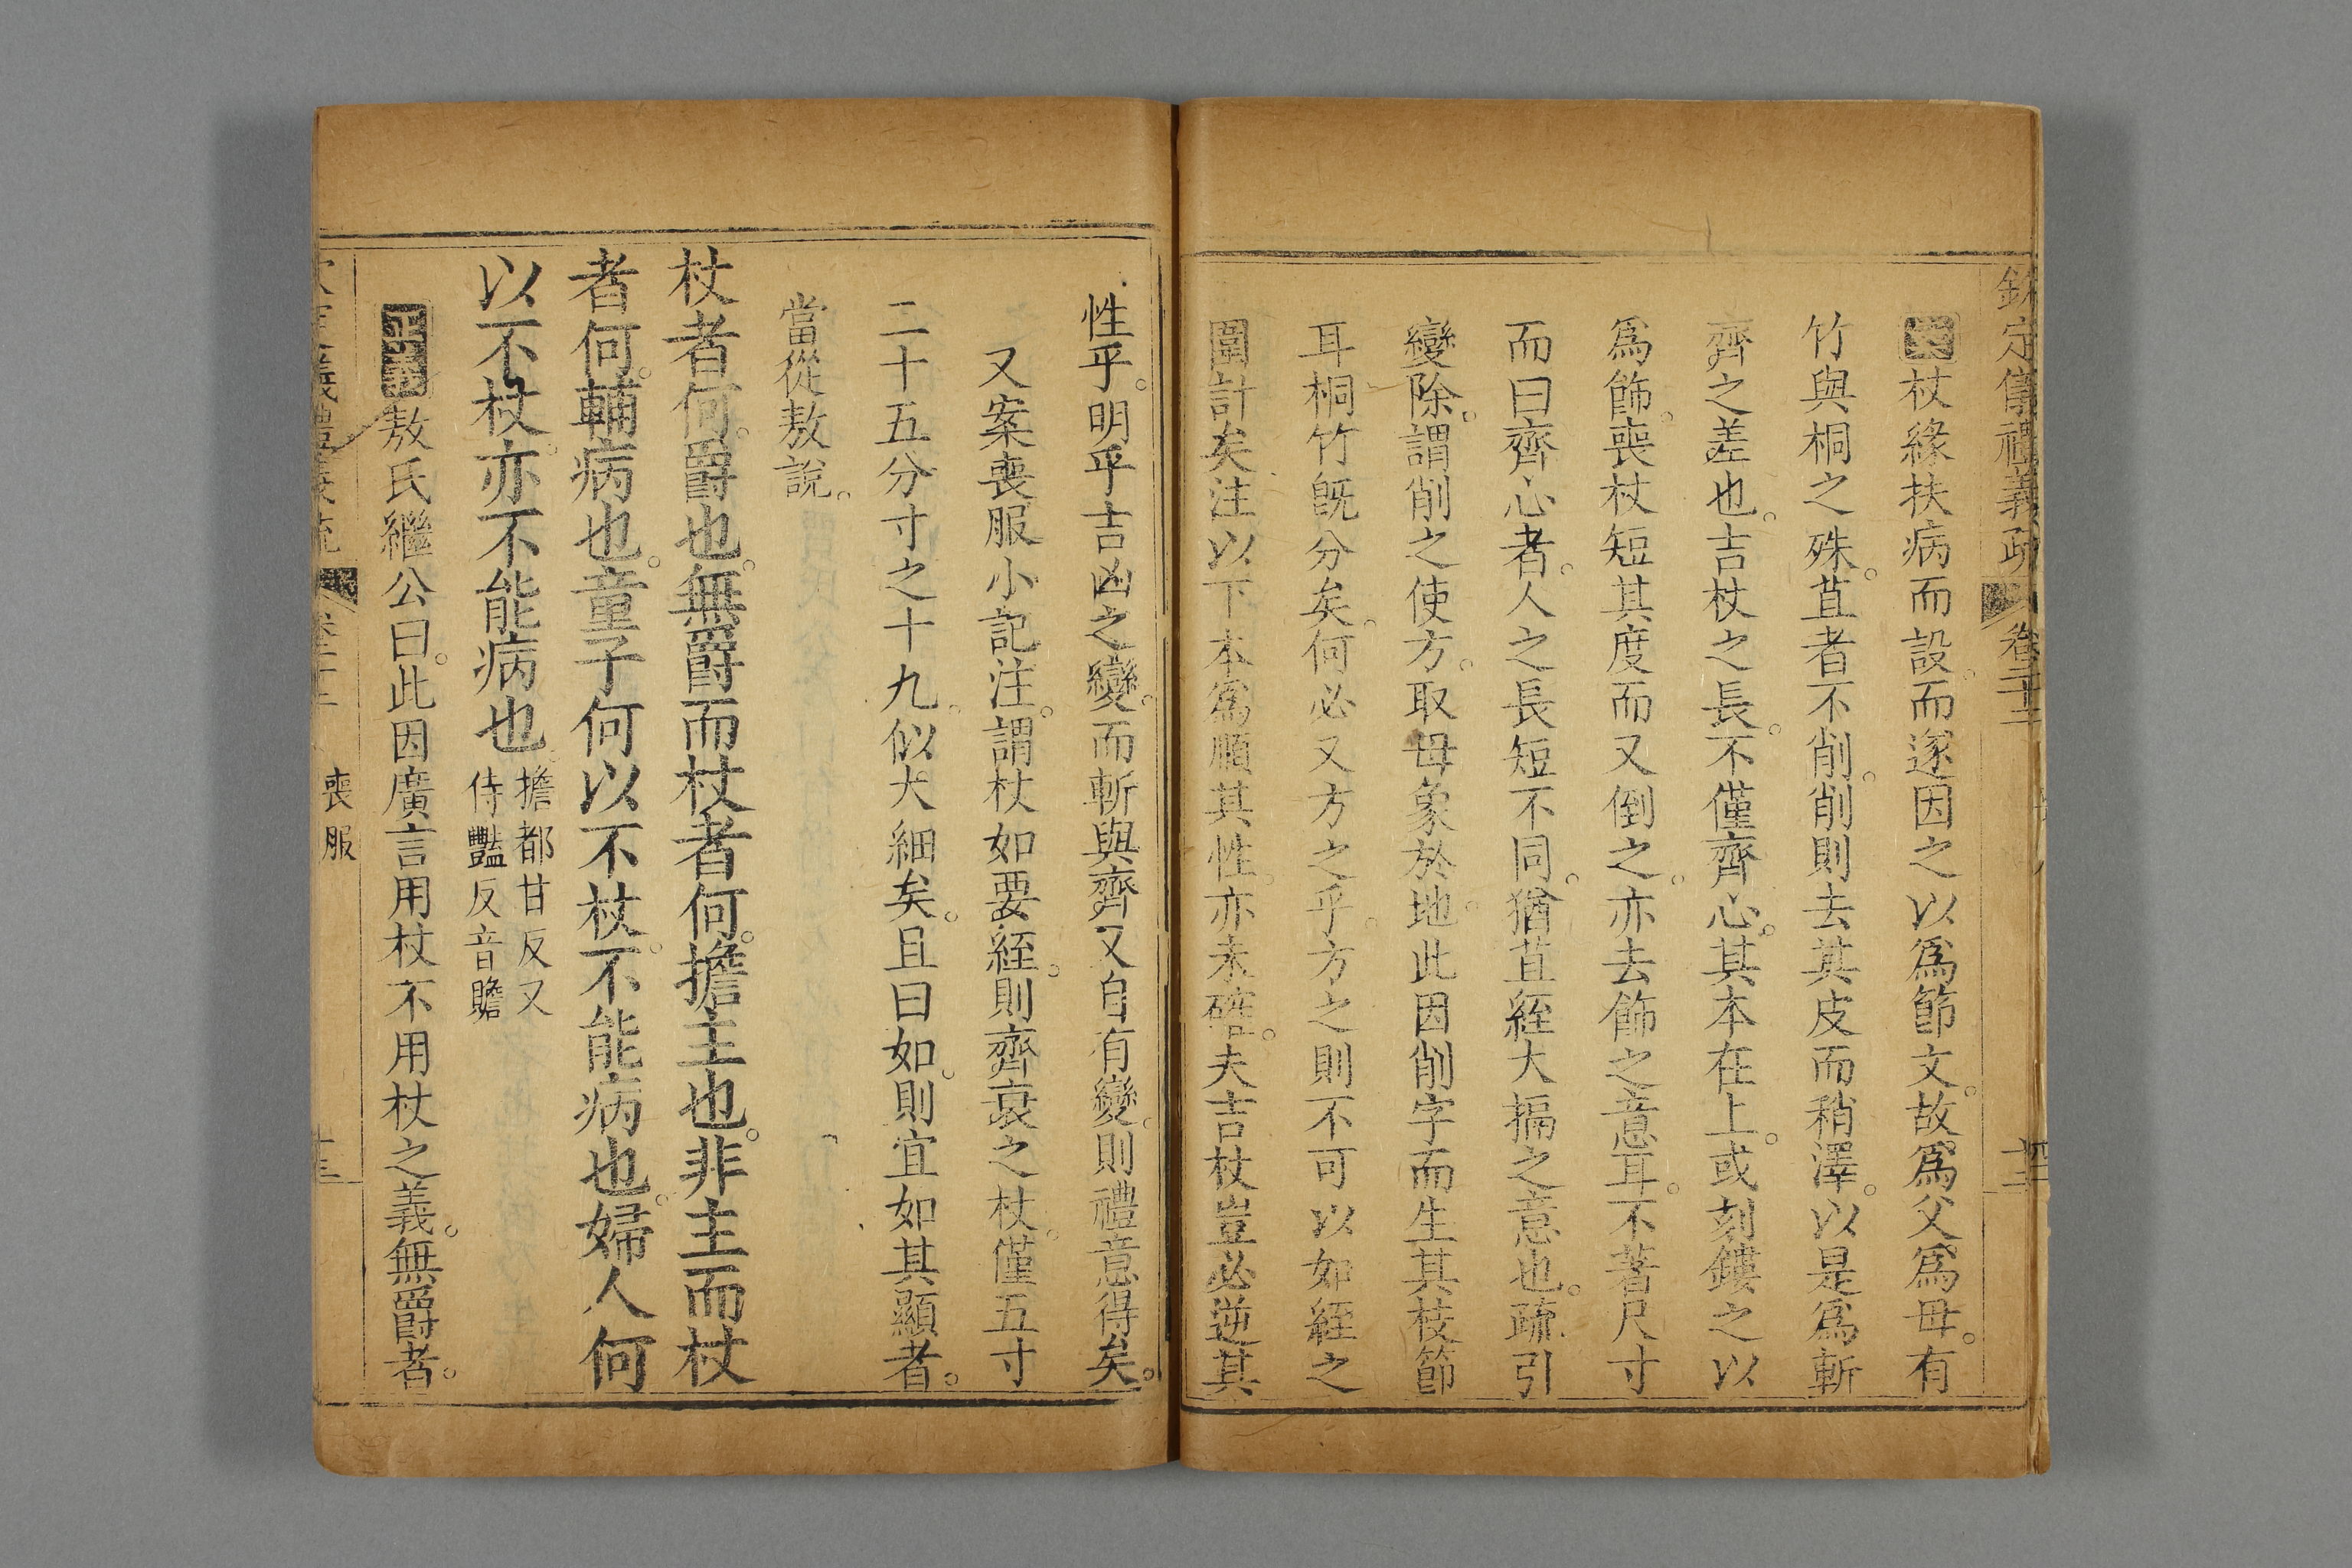 欽定儀禮義疏 卷二十二
案杖緣扶病而設。而遂因之以爲節文。故爲父爲母。有
竹與桐之殊。苴者不削。削則去其皮而稍澤。以是爲斬
齊之差也。吉杖之長。不僅齊心。其本在上。或刻鏤之以
爲飾。喪杖短其度而又倒之。亦去飾之意耳。不著尺寸
而曰齊心者。人之長短不同。猶苴絰大搹之意也。疏引
變除。謂削之使方。取母象於地。此因削字而生其枝節
耳桐竹既分矣。何必又方之乎。方之則不可以如絰之
圍計矣注以下本爲順其性。亦未確。夫吉杖豈必逆其
性乎。明乎吉凶之變。而斬與齊又自有變。則禮意得矣。
又案喪服小記注。謂杖如要絰。則齊衰之杖。僅五寸
二十五分寸之十九。似大細矣。且曰如。則宜如其顯者。
當從敖說。
杖者何。爵也。無爵而杖者何。擔主也。非主而杖
者何。輔病也。童子何以不杖。不能病也。婦人何
以不杖。亦不能病也。擔都甘反又
侍豔反音贍
正義敖氏繼公曰。此因廣言用杖不用杖之義。無爵者。
喪服